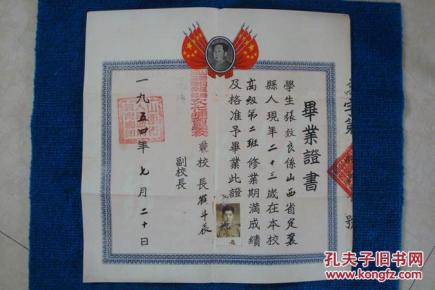 畢業證書
學生張效良係山西省定襄
縣人現年二十三歲在本校
高級第二班修業期滿成績
及格准予畢業此證
兼校長
副校長
一九五四年七月二十日
字第
號
孔夫子旧书网
www.kongfz.com